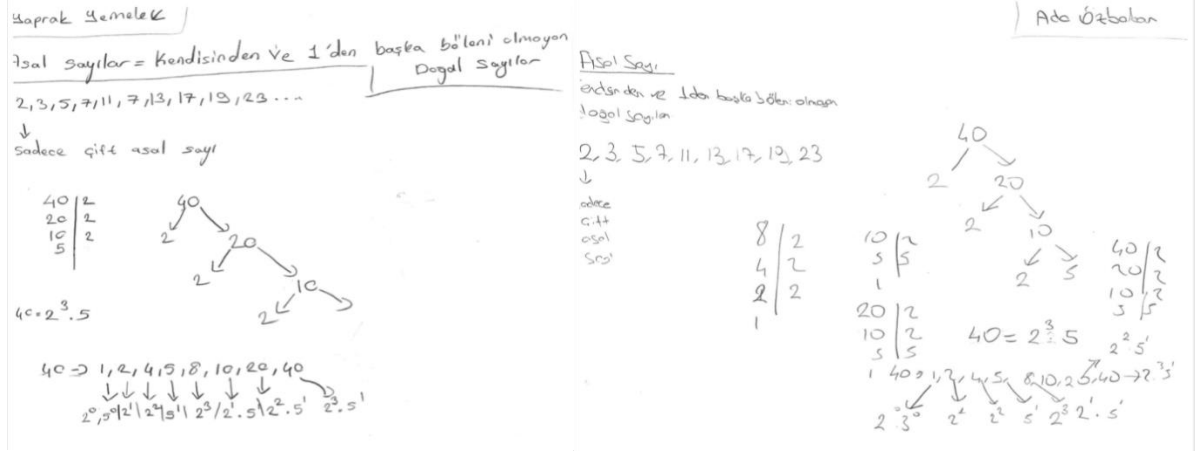 Yaprak Yemelek
Asal sayılar = Kendisinden ve 1'den başka böleni olmayan
Doğal Sayılar
2,3,5,7,11,7,13,17,19,23....
↓
Sadece çift asal sayı
40 | 2
20 | 2
10 | 2
5
40
2 20
2 10
2
40=2³.5
40 => 1,2,4,5,8,10,20,40
2⁰,5⁰/2¹/2²/5¹/2³/2¹.5¹/2².5¹ 2³.5¹
Ada Özbalan
Asal Sayı
endsnden ve 1den başka böleni olmayan
doğal sayılar
2,3,5,7,11,13,17,19,23
↓
adece
çift
asal
sayı
8 | 2
4 | 2
2 | 2
1
10 | 2
5 | 5
1
20 | 2
10 | 2
5 | 5
1
40
2 20
2 10
2 5
40 | 2
20 | 2
10 | 2
5 | 5
40=2³.5
2².5¹
40=1,2,4,5,8,10,20,40→2³5¹
2⁰.3⁰ 2¹ 2² 5¹ 2³ 2¹.5¹